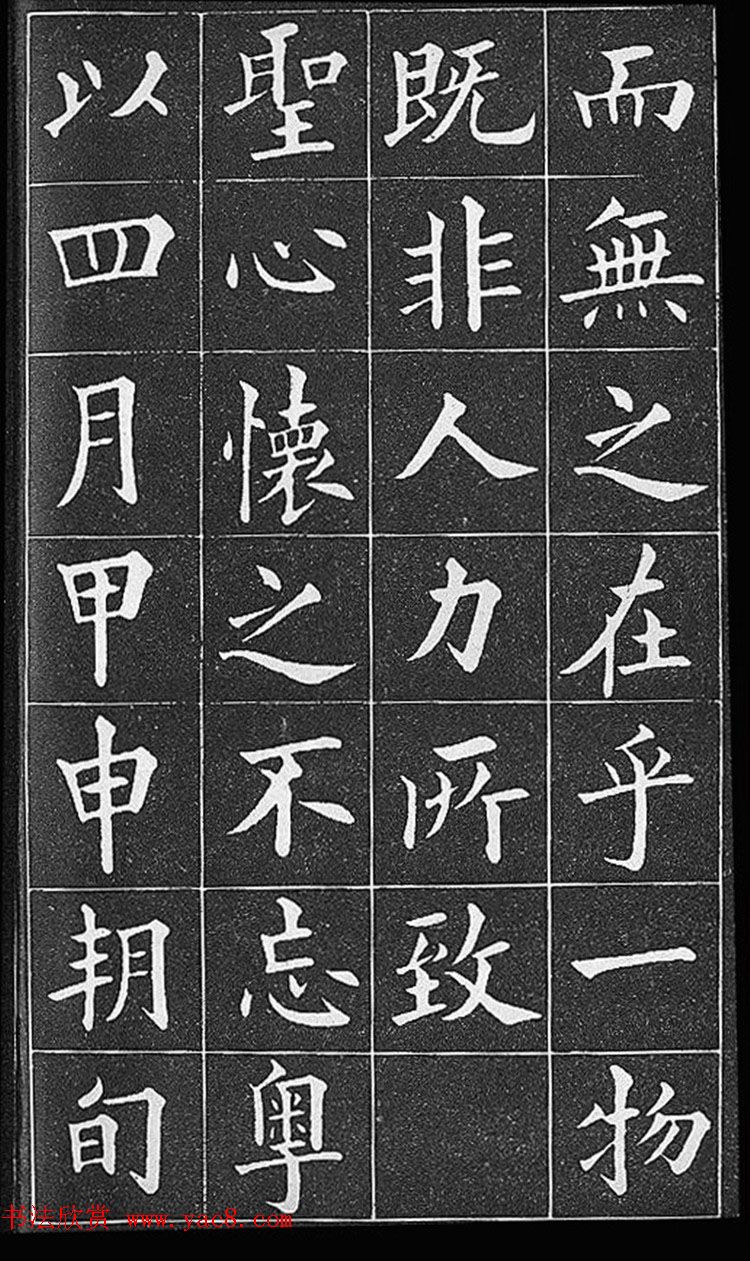 而無之在乎一物
既非人力所致
聖心懷之不忘粤
以四月甲申朔旬
书法欣赏 www.yac8.com